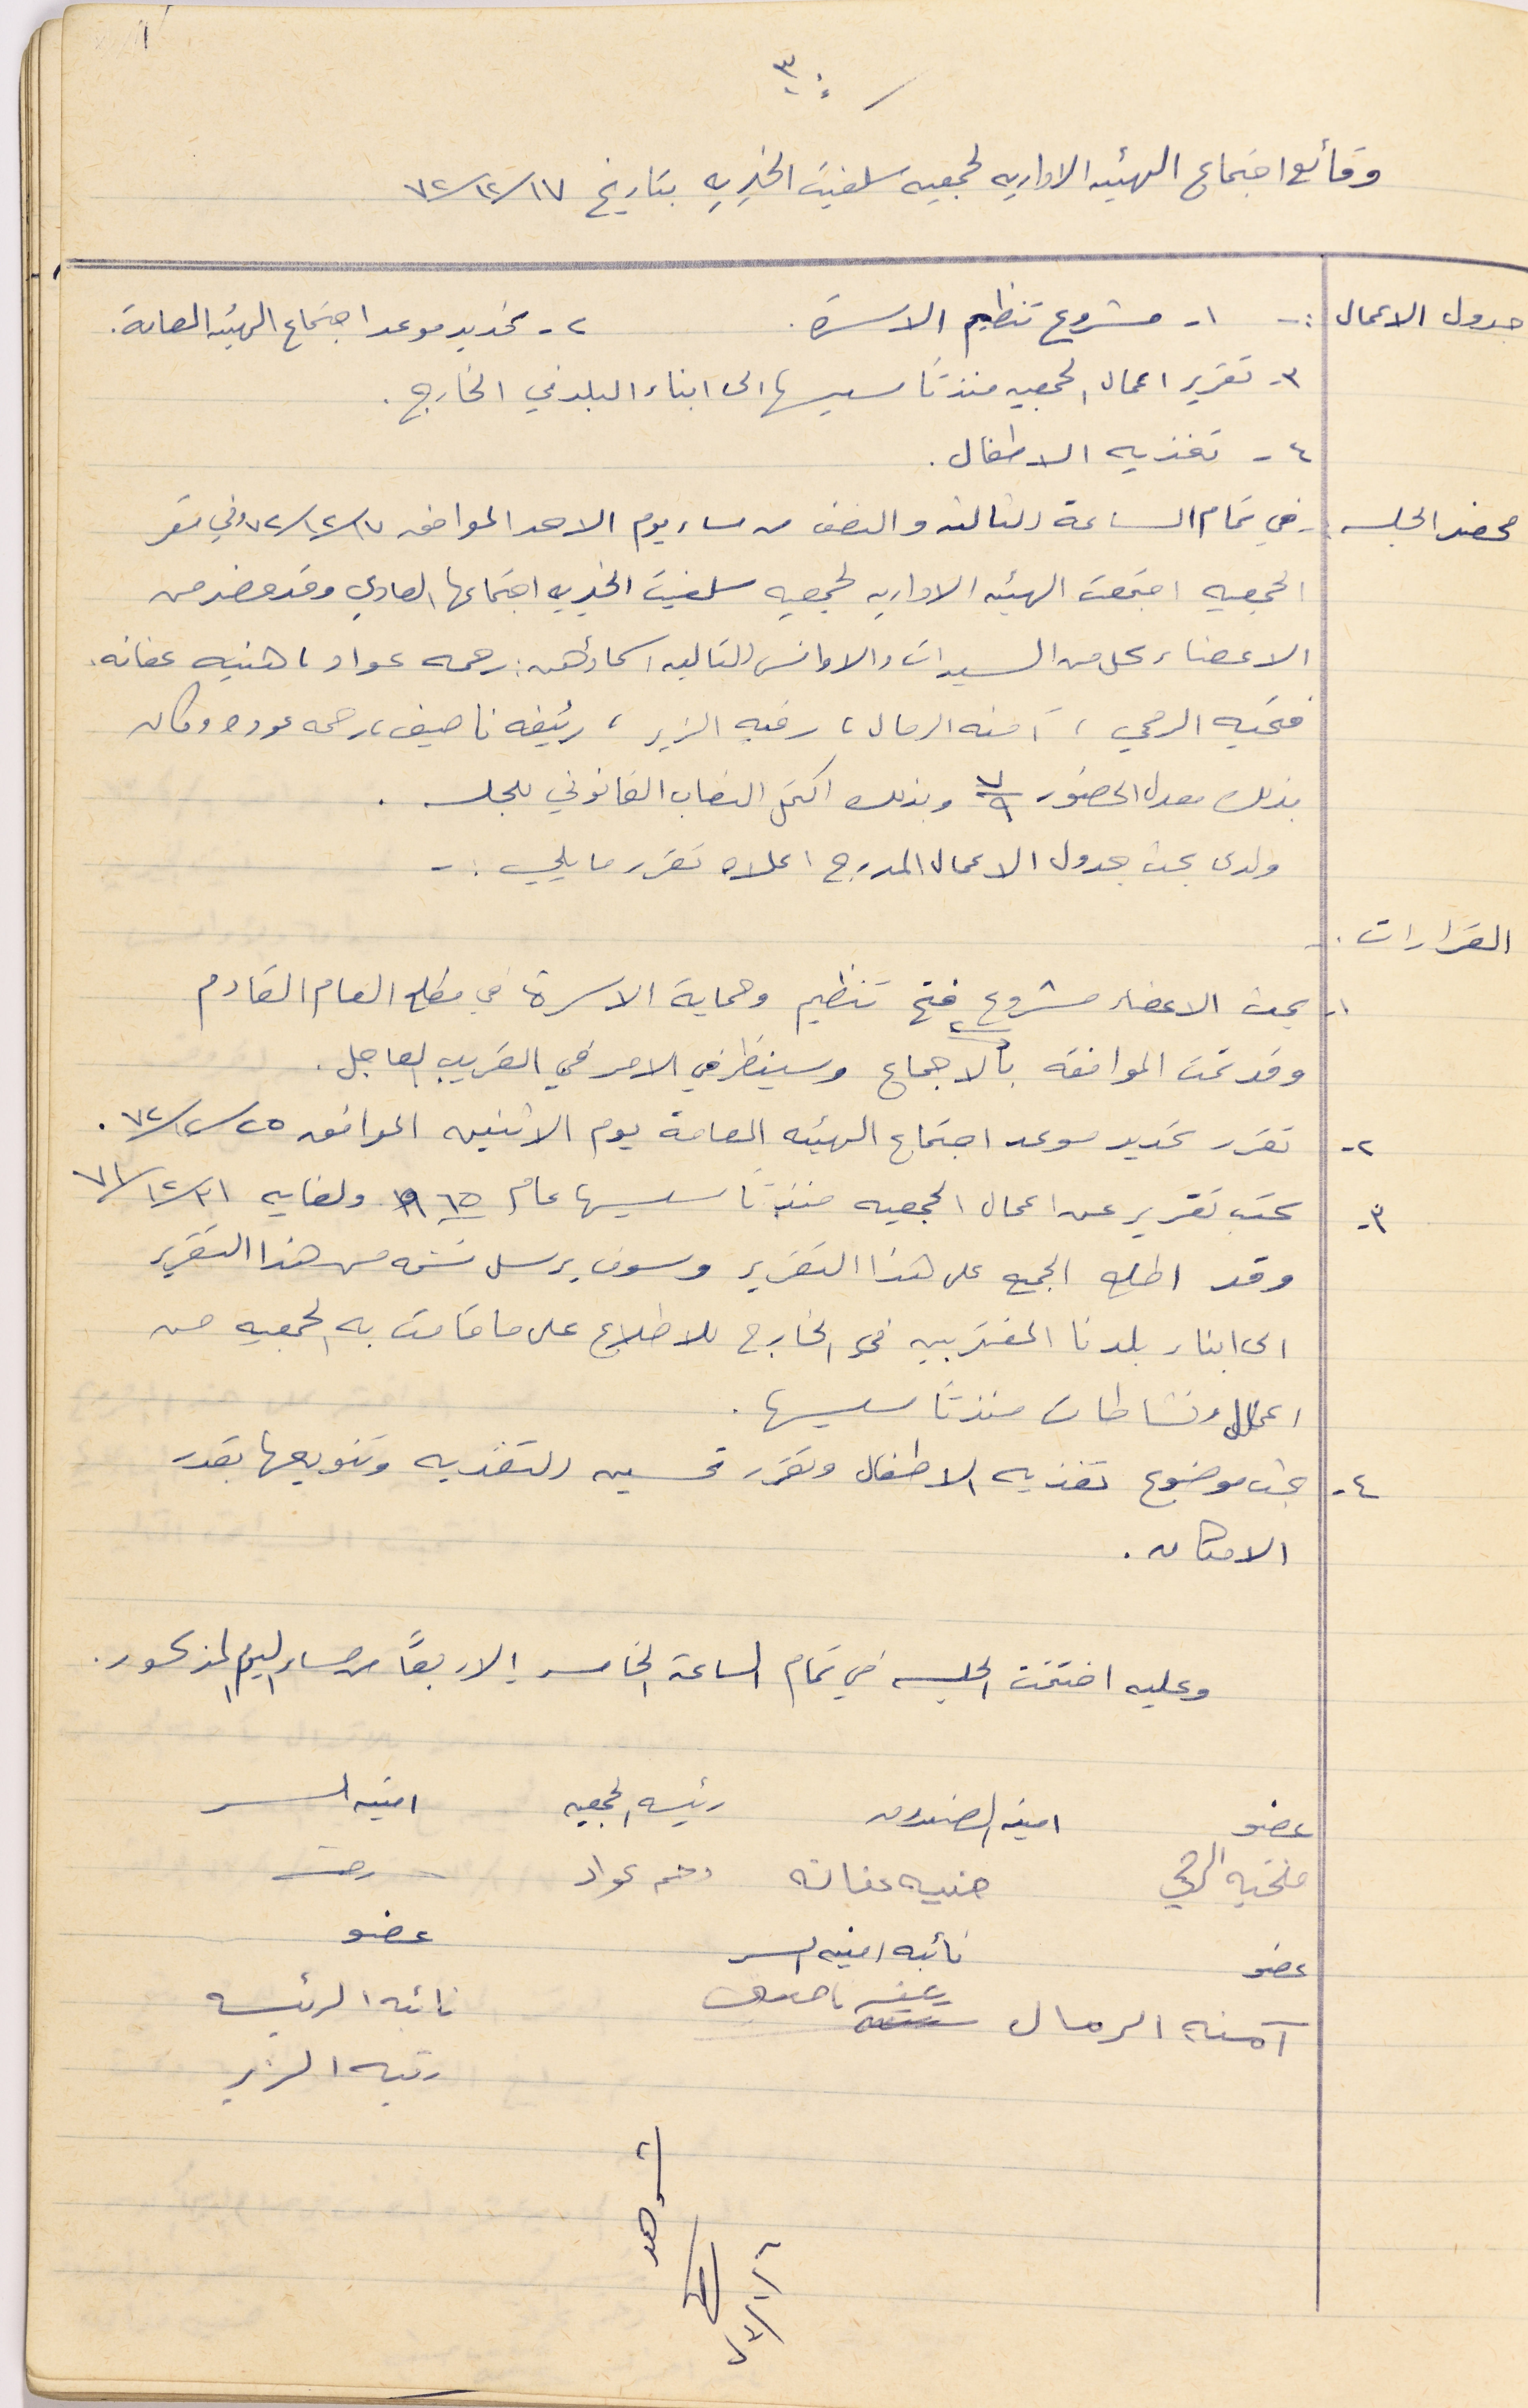 ٣٠
وقائع اجتماع الهيئه الاداريه لجمعيه سلفيت الخيريه بتاريخ ١٧/١٢/٧٢
جدول الاعمال :- ١- مشروع تنظيم الاسرة. ٢- تحديد موعد اجتماع الهيئه العامة.
٣- تقرير اعمال الجمعيه منذ تأسيسها الى ابناء البلد في الخارج.
٤- تغذيه الاطفال.
محضر الجلسه :- في تمام الساعة الثالثه والنصف من مساء يوم الاحد الموافق ١٧/١٢/٧٢ وفي مقر
الجمعيه اجتمعت الهيئه الاداريه لجمعيه سلفيت الخيريه اجتماعها العادي وقد حضر من
الاعضاء كل من السيدات والاوانس التاليه اسماؤهن: رحمه عواد، هنيه عفانه،
فتحيه الرمحي، آمنه الرمال، رقيه الزير، رئيفه ناصيف، رحمه عوده وكان
بذلك معدل الحضور ٧/٩ وبذلك اكتمل النصاب القانوني للجلسه.
ولدى بحث جدول الاعمال المدرج اعلاه تقرر ما يلي :-
القرارات :-
١- بحث الاعضاء مشروع فتح تنظيم وحماية الاسرة في مطلع العام القادم
وقد تمت الموافقه بالاجماع وسينظر في الامر في القريب العاجل.
٢- تقرر تحديد موعد اجتماع الهيئه العامة يوم الاثنين الموافق ٢٥/١٢/٧٢.
٣- كتب تقرير عن اعمال الجمعيه منذ تأسيسها عام ١٩٦٥ ولغايه ٣١/١٢/٧١
وقد اطلع الجميع على هذا التقرير وسوف يرسل نسخه من هذا التقرير
الى ابناء بلدنا المغتربين في الخارج للاطلاع على ما قامت به الجمعيه من
اعمال ونشاطات منذ تأسيسها.
٤- بحث موضوع تغذيه الاطفال وتقرر تحسين التغذيه وتنويعها بقدر
الامكان.
وعليه اختتمت الجلسه في تمام الساعة الخامسه إلا ربعاً من مساء اليوم المذكور.
عضو امينه الصندوق رئيسه الجمعيه امينه السر
فتحيه الرمحي هنيه عفانه رحمه عواد
عضو نائبه امينه السر عضو
آمنه الرمال رئيفه ناصيف نائبه الرئيسه
رقيه الزير
شوهد